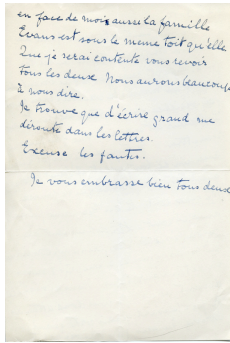 en face de moi aussi la famille
Evans est sous le meme toit qu'elle
Que je serai contente vous revoir
tous les deux Nous aurons beaucoup
à nous dire.
Je trouve que d'écrire grand me
déroute dans les lettres.
Excuse les fautes.
Je vous embrasse bien tous deux